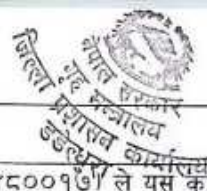 नेपाल सरकार
गृह मन्त्रालय
जिल्ला प्रशासन कार्यालय
डडेल्धुरा
८००१७) ले यस